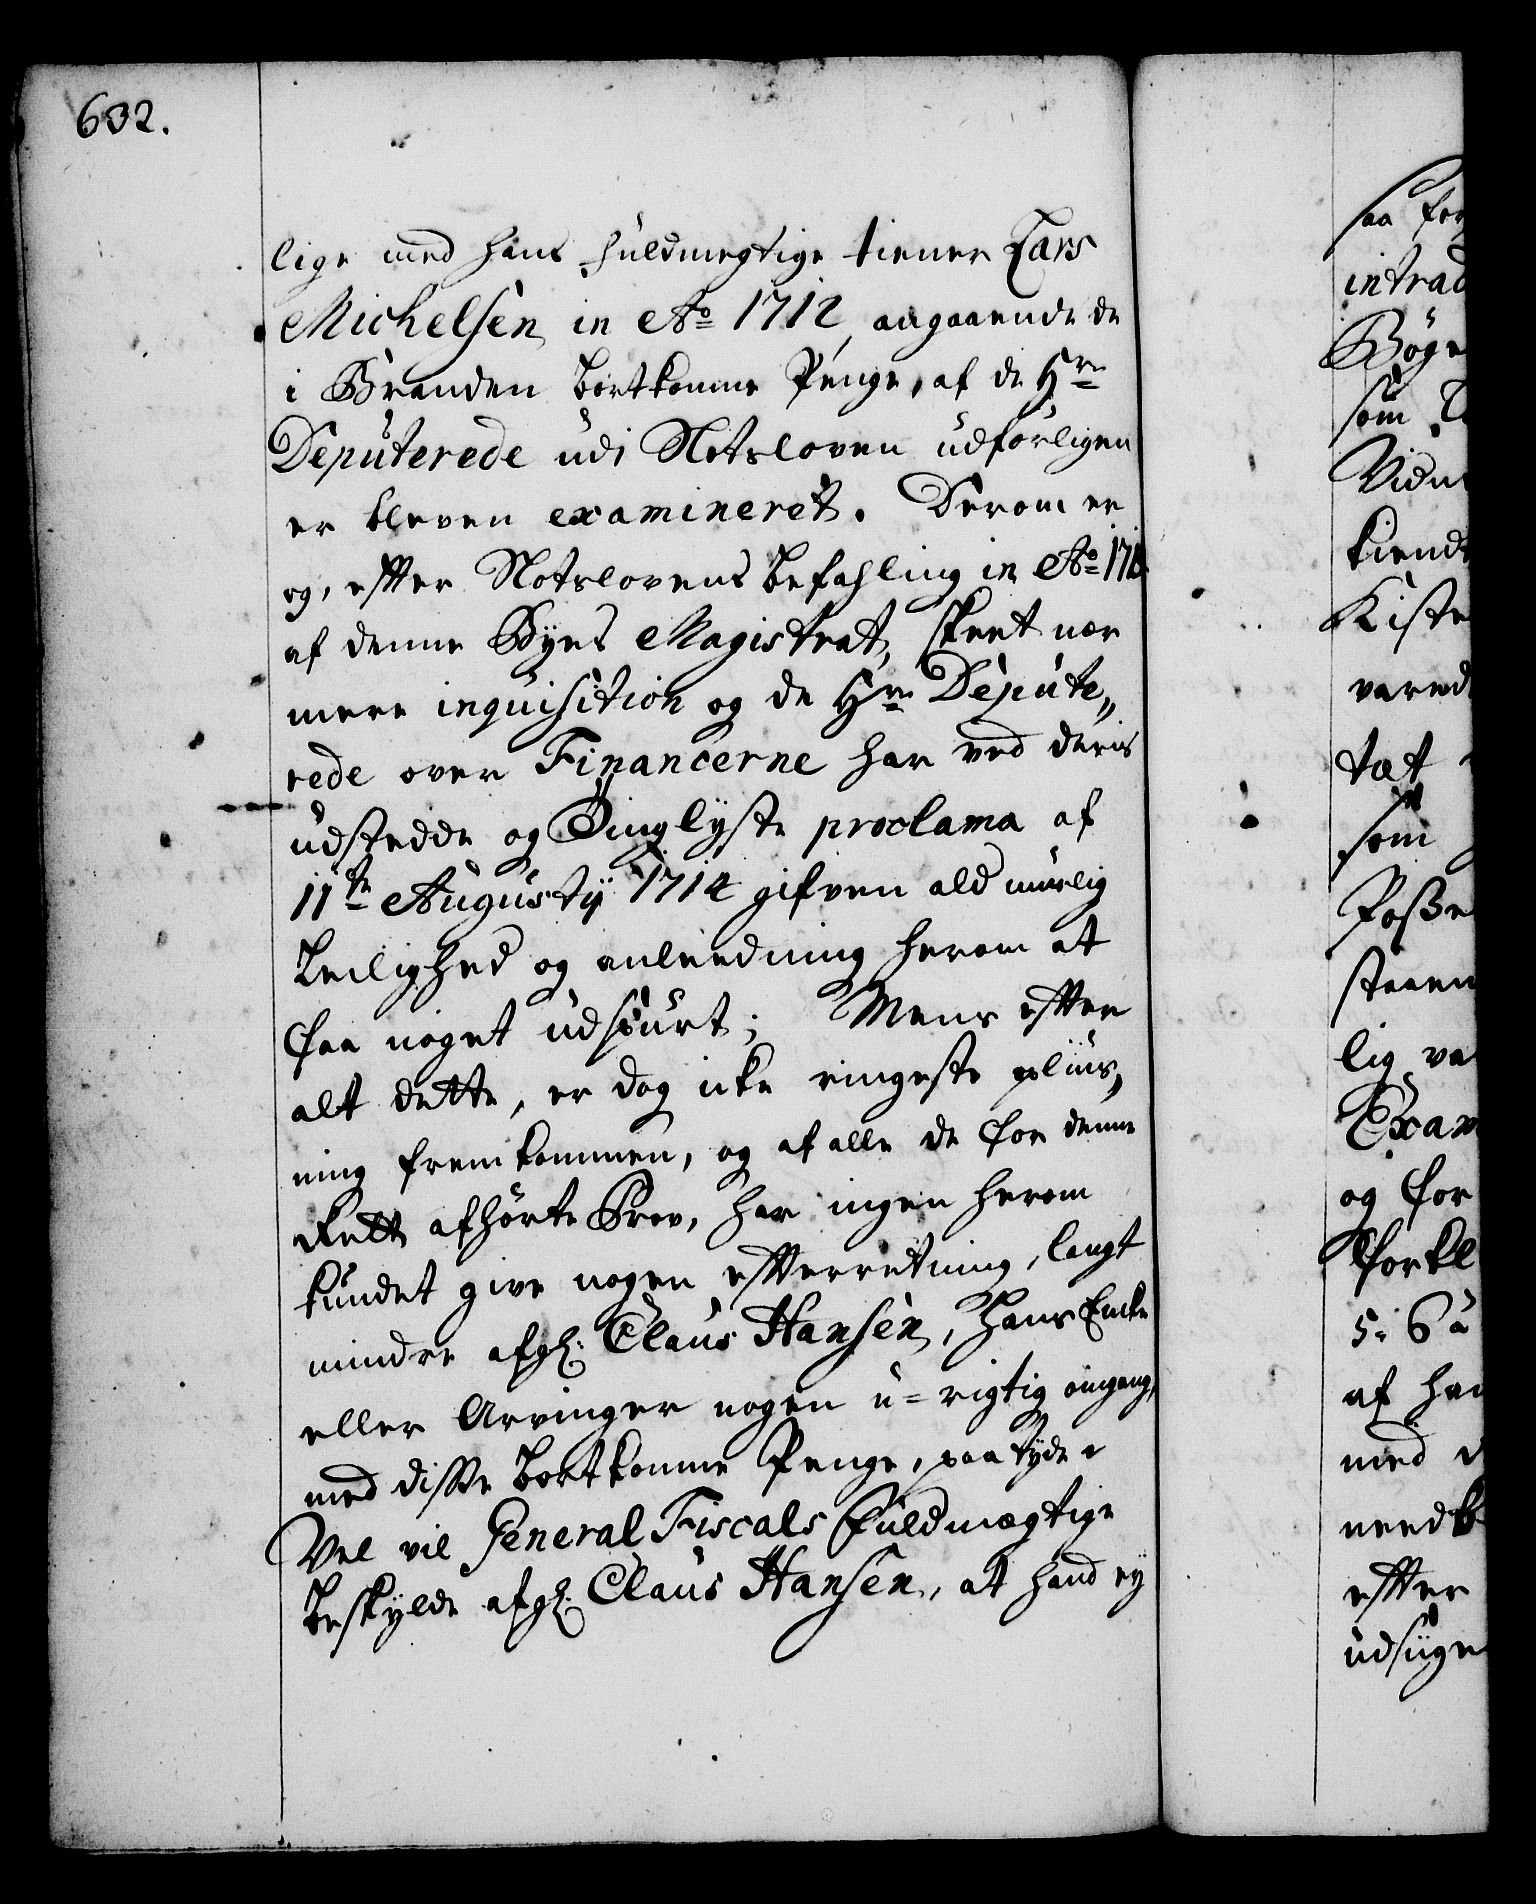 632.
lige med hans fuldmegtige tiener Lars
Michelsen in Ao 1712, angaaende de
i Branden bortkomne Penge, af de Hrr
Deputerede udi Slotsloven udførligen
er bleven examineret. Derom er
og, efter Slotslovens befahling in Ao
af denne Byes Magistrat, skeet nær
mere inquisition og de Hrr Depute„
rede over Financerne har ved deris
udstedde og Tinglyste proclama af
11te Augusty 1714 gifven ald muelig
Leilighed og anleedning herom at
faa noget udspurt; Mens efter
alt dette, er dog icke ringeste pliüs,
ning fremkommen, og af alle de for denne
Rett afhørte Prov, har ingen herom
kundet give nogen efterretning, langt
mindre afg: Claus Hansen, Hans Encke
eller Arvinger nogen u=rigtig omgang,
med disse bortkomne Penge, paa tyde
Vel vil General Fiscals Fuldmægtige
beskylde afg: Claus Hansen, at hand ey
saa for
intrad
Bøge
som
Vidne
kiendt
Kiste
vared
tæt
som
Poße
staaen
lig va
Exam
og for
forkl
5 i 6 a
af han
med d
needk
efter
udsige